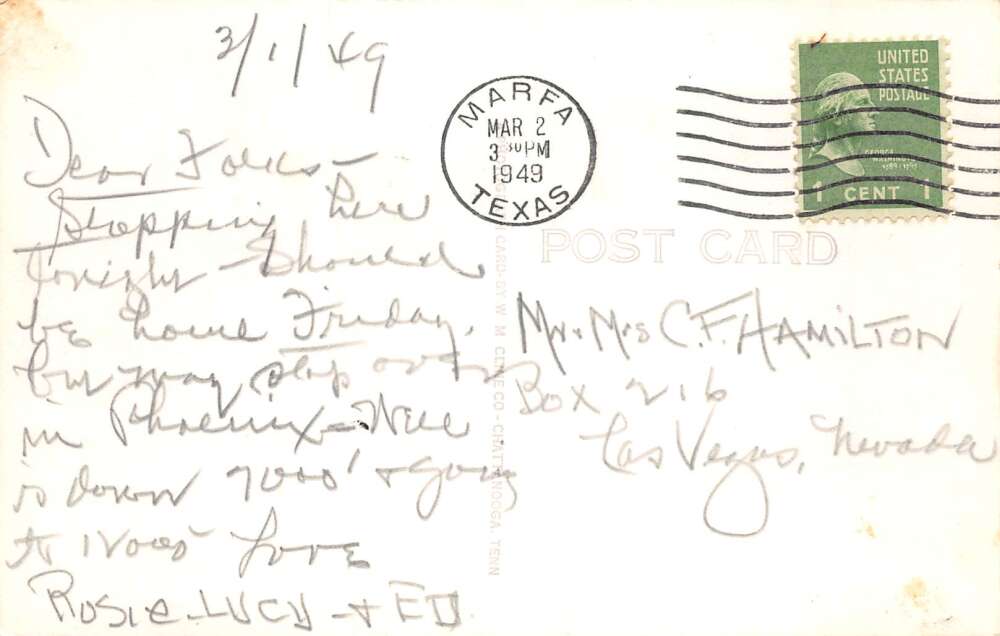 3/1/49
Dear Folks—
Stopping here
tonight—Should
be home Friday,
but may stop over
in Phoenix—Well
is down 7000' + going
to 12000' Love
Rosie—LUCY—+ ED
MARFA
MAR 2
3 30 PM
1949
TEXAS
UNITED
STATES
POSTAGE
GEORGE
WASHINGTON
1789-1797
1 CENT 1
POST CARD
CARD-BY W. M. CLINE CO-CHATTANOOGA, TENN
Mr. Mrs C.F. HAMILTON
Box 216
Las Vegas, Nevada